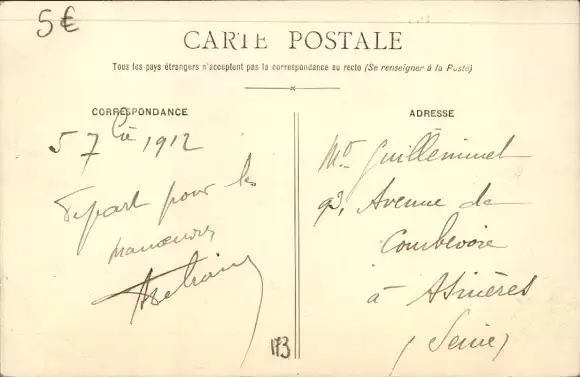 5€
CARTE POSTALE
Tous les pays étrangers n'acceptent pas la correspondance au recto (Se renseigner à la Poste)
CORRESPONDANCE
5 7bre 1912
Départ pour les
manœuvres
ADRESSE
Mr Guilleminet
93, Avenue de
Courbevoie
à Asnières
(Seine)
173